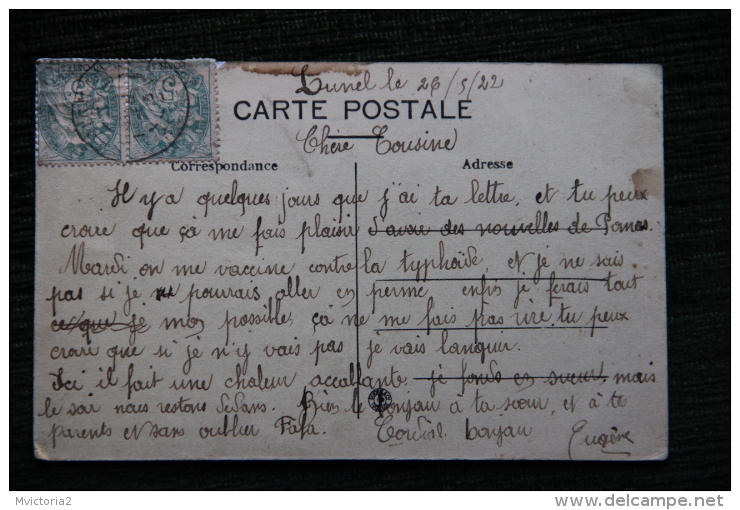 Lunel le 26/5/22
CARTE POSTALE
Chère Cousine
Correspondance Adresse
Il y a quelques jours que j'ai ta lettre, et tu peux
croire que çà me fais plaisir d'avoir des nouvelles de Pomas.
Mardi on me vaccine contre la typhoïde et je ne sais
pas si je pourrais aller en perme enfin je ferais tout
mon possible, çà ne me fais pas rire, tu peux
croire que si je n'y vais pas je vais languir.
Ici il fait une chaleur accablante je fonds en sueur, mais
le soir nous restons Dedans. Bien le bonjour à ta sœur, et à te
parents et sans oublier Fafa. Cordial bonjour
Eugène
Mvictoria2
www.delcampe.net